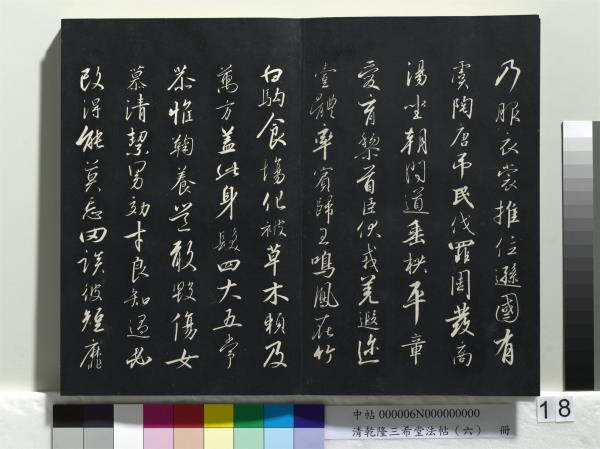 乃服衣裳推位遜國有
虞陶唐吊民伐罪周發商
湯坐朝問道垂拱平章
愛育黎首臣伏戎羌遐迩
壹體率賓歸王鳴鳳在竹
白駒食場化被草木賴及
萬方蓋此身髮四大五常
恭惟鞠養豈敢毀傷女
慕清絜男効才良知過必
改得能莫忘罔談彼短靡
中帖 000006N000000000
清乾隆三希堂法帖(六) 冊
18